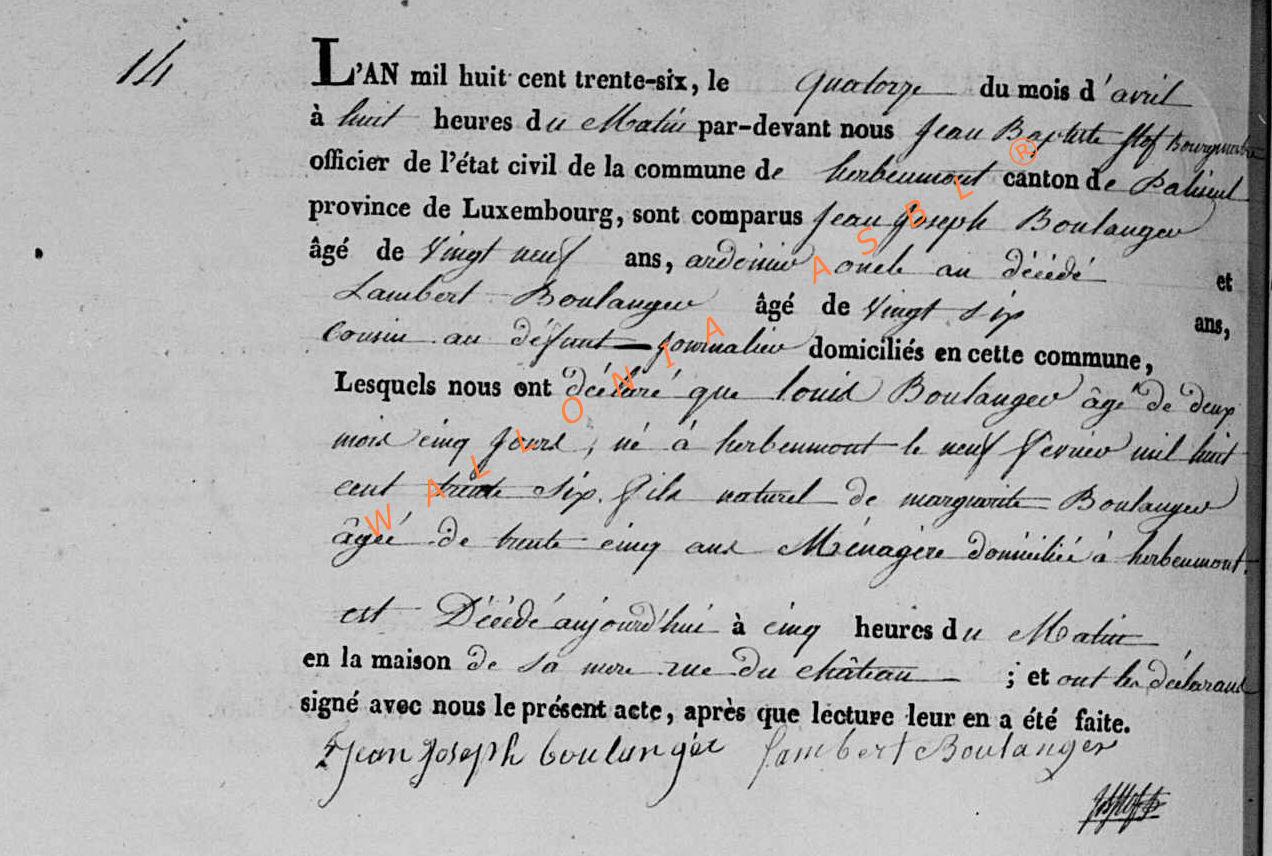 14
L'AN mil huit cent trente-six, le quatorze du mois d'avril
à huit heures du Matin par-devant nous Jean Baptiste Stof Bourgmestre
officier de l'état civil de la commune de herbeumont canton de Paliseul
province de Luxembourg, sont comparus Jean Joseph Boulanger
âgé de Vingt neuf ans, ardoisier oncle au décédé et
Lambert Boulanger âgé de Vingt six ans,
Cousin au défunt journalier domiciliés en cette commune,
Lesquels nous ont déclaré que louis Boulanger âgé de deux
mois cinq jours, né à herbeumont le neuf fevrier mil huit
cent trente six. fils naturel de marguerite Boulanger
âgée de trente cinq ans Ménagère domiciliée à herbeumont.
est Décédé aujourd'hui à cinq heures du Matin
en la maison de sa mere rue du château ; et ont les déclarans
signé avec nous le présent acte, après que lecture leur en a été faite.
Jean Joseph boulanger Lambert Boulanger
WALLONIA ASBL ®